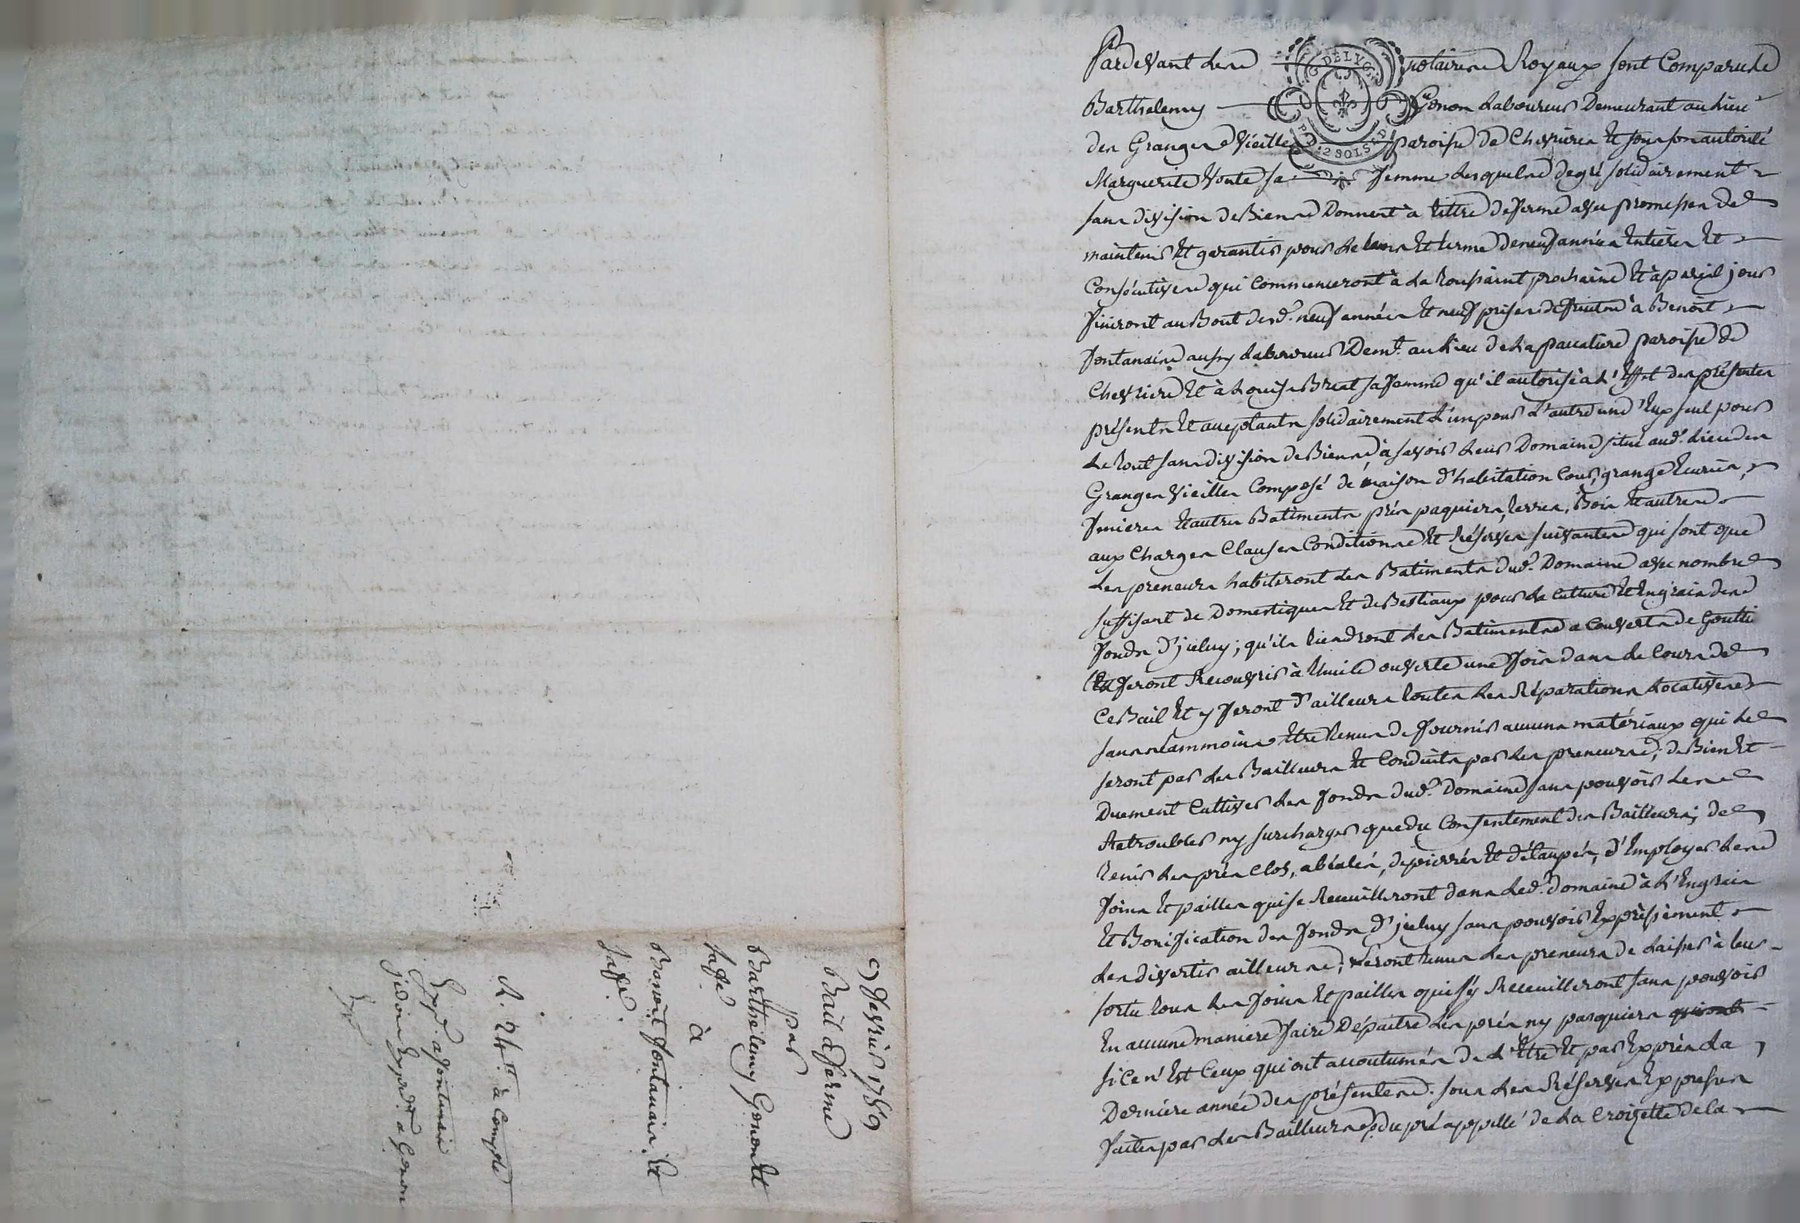 Pardevant les notaires Royaux sont Comparu les
Barthelemy Gonon Laboureur Demeurant au Lieu
des Granges Vieilles paroisse de Chevrieres Et sous son autorité
Marguerite Vonte sa femme Lesquels de gré solidairement
sans division de Biens Donnent à titre de ferme avec promesse de
maintenir Et garantir pour le tems Et terme de neuf années Entieres Et
Consécutives qui Commenceront à La Toussaint prochaine Et à pareil jour
finiront au Bout desd. neuf années Et neuf prises de fruits à Benoit
fontanaine aussy Laboureur Demt. au Lieu de La pacature paroisse de
Chevriere Et à Louise Breat sa femme qu'il autorise à L'Effet des présentes
présents Et acceptants solidairement L'un pour L'autre un d'Eux seul pour
Le Tout sans division de Biens à savoir Leur Domaine situé aud. Lieu des
Granges Vieilles Composé de maison d'habitation Cour, grange Ecuries,
fenieres Et autres Batiments prés paquiers, terres, Bois Et autres
aux Charges Clauses Conditions Et Réserves suivantes qui sont que
Les preneurs habiteront les Batiments dud. Domaine avec nombre
suffisant de Domestiques Et de Bestiaux pour La Culture Et Engrais des
fonds d'jceluy; qu'ils tiendront Les Batiments à Couverts de Goutti
Et feront Recouvrir à tuile ouverte une fois dans le Cours de
Ce Bail Et y feront d'ailleurs toutes Les Réparations Locatives
sans néammoins Etre tenus de fournir aucuns matériaux qui Le
seront par Les Bailleurs Et Conduits par Les preneurs; de Bien Et
Duement Cultiver Les fonds dud. Domaine sans pouvoir Les
Retroubler ny surcharger que du Consentement des Bailleurs; de
tenir Les prés Clos, abéalés, depierrés Et détaupés, d'Employer Les
foins Et pailles qui se Receuilleront dans Led. domaine à L'Engrais
Et Bonification des fonds d'jceluy sans pouvoir Expressement
Les divertir ailleurs; seront tenus Les preneurs de Laisser à leur
sortie tous Les foins Et pailles qui s'y Receuilleront sans pouvoir
En aucune maniere faire Dépaitre Les prés ny pasquiers
si ce n'Est Ceux qui ont accoutumés de L'Etre Et pas Exprès La
Derniere année des présentes. sous Les Réserves Expresses
faites par Les Bailleurs du pré appellé de La Croizette de la
9 fevrier 1789
Bail à ferme
par
Barthelemy Gonon Et
sa fe
à
Benoit fontanaine Et
sa fe.
R. 24 tt à Compte
Expd. a fontanaine